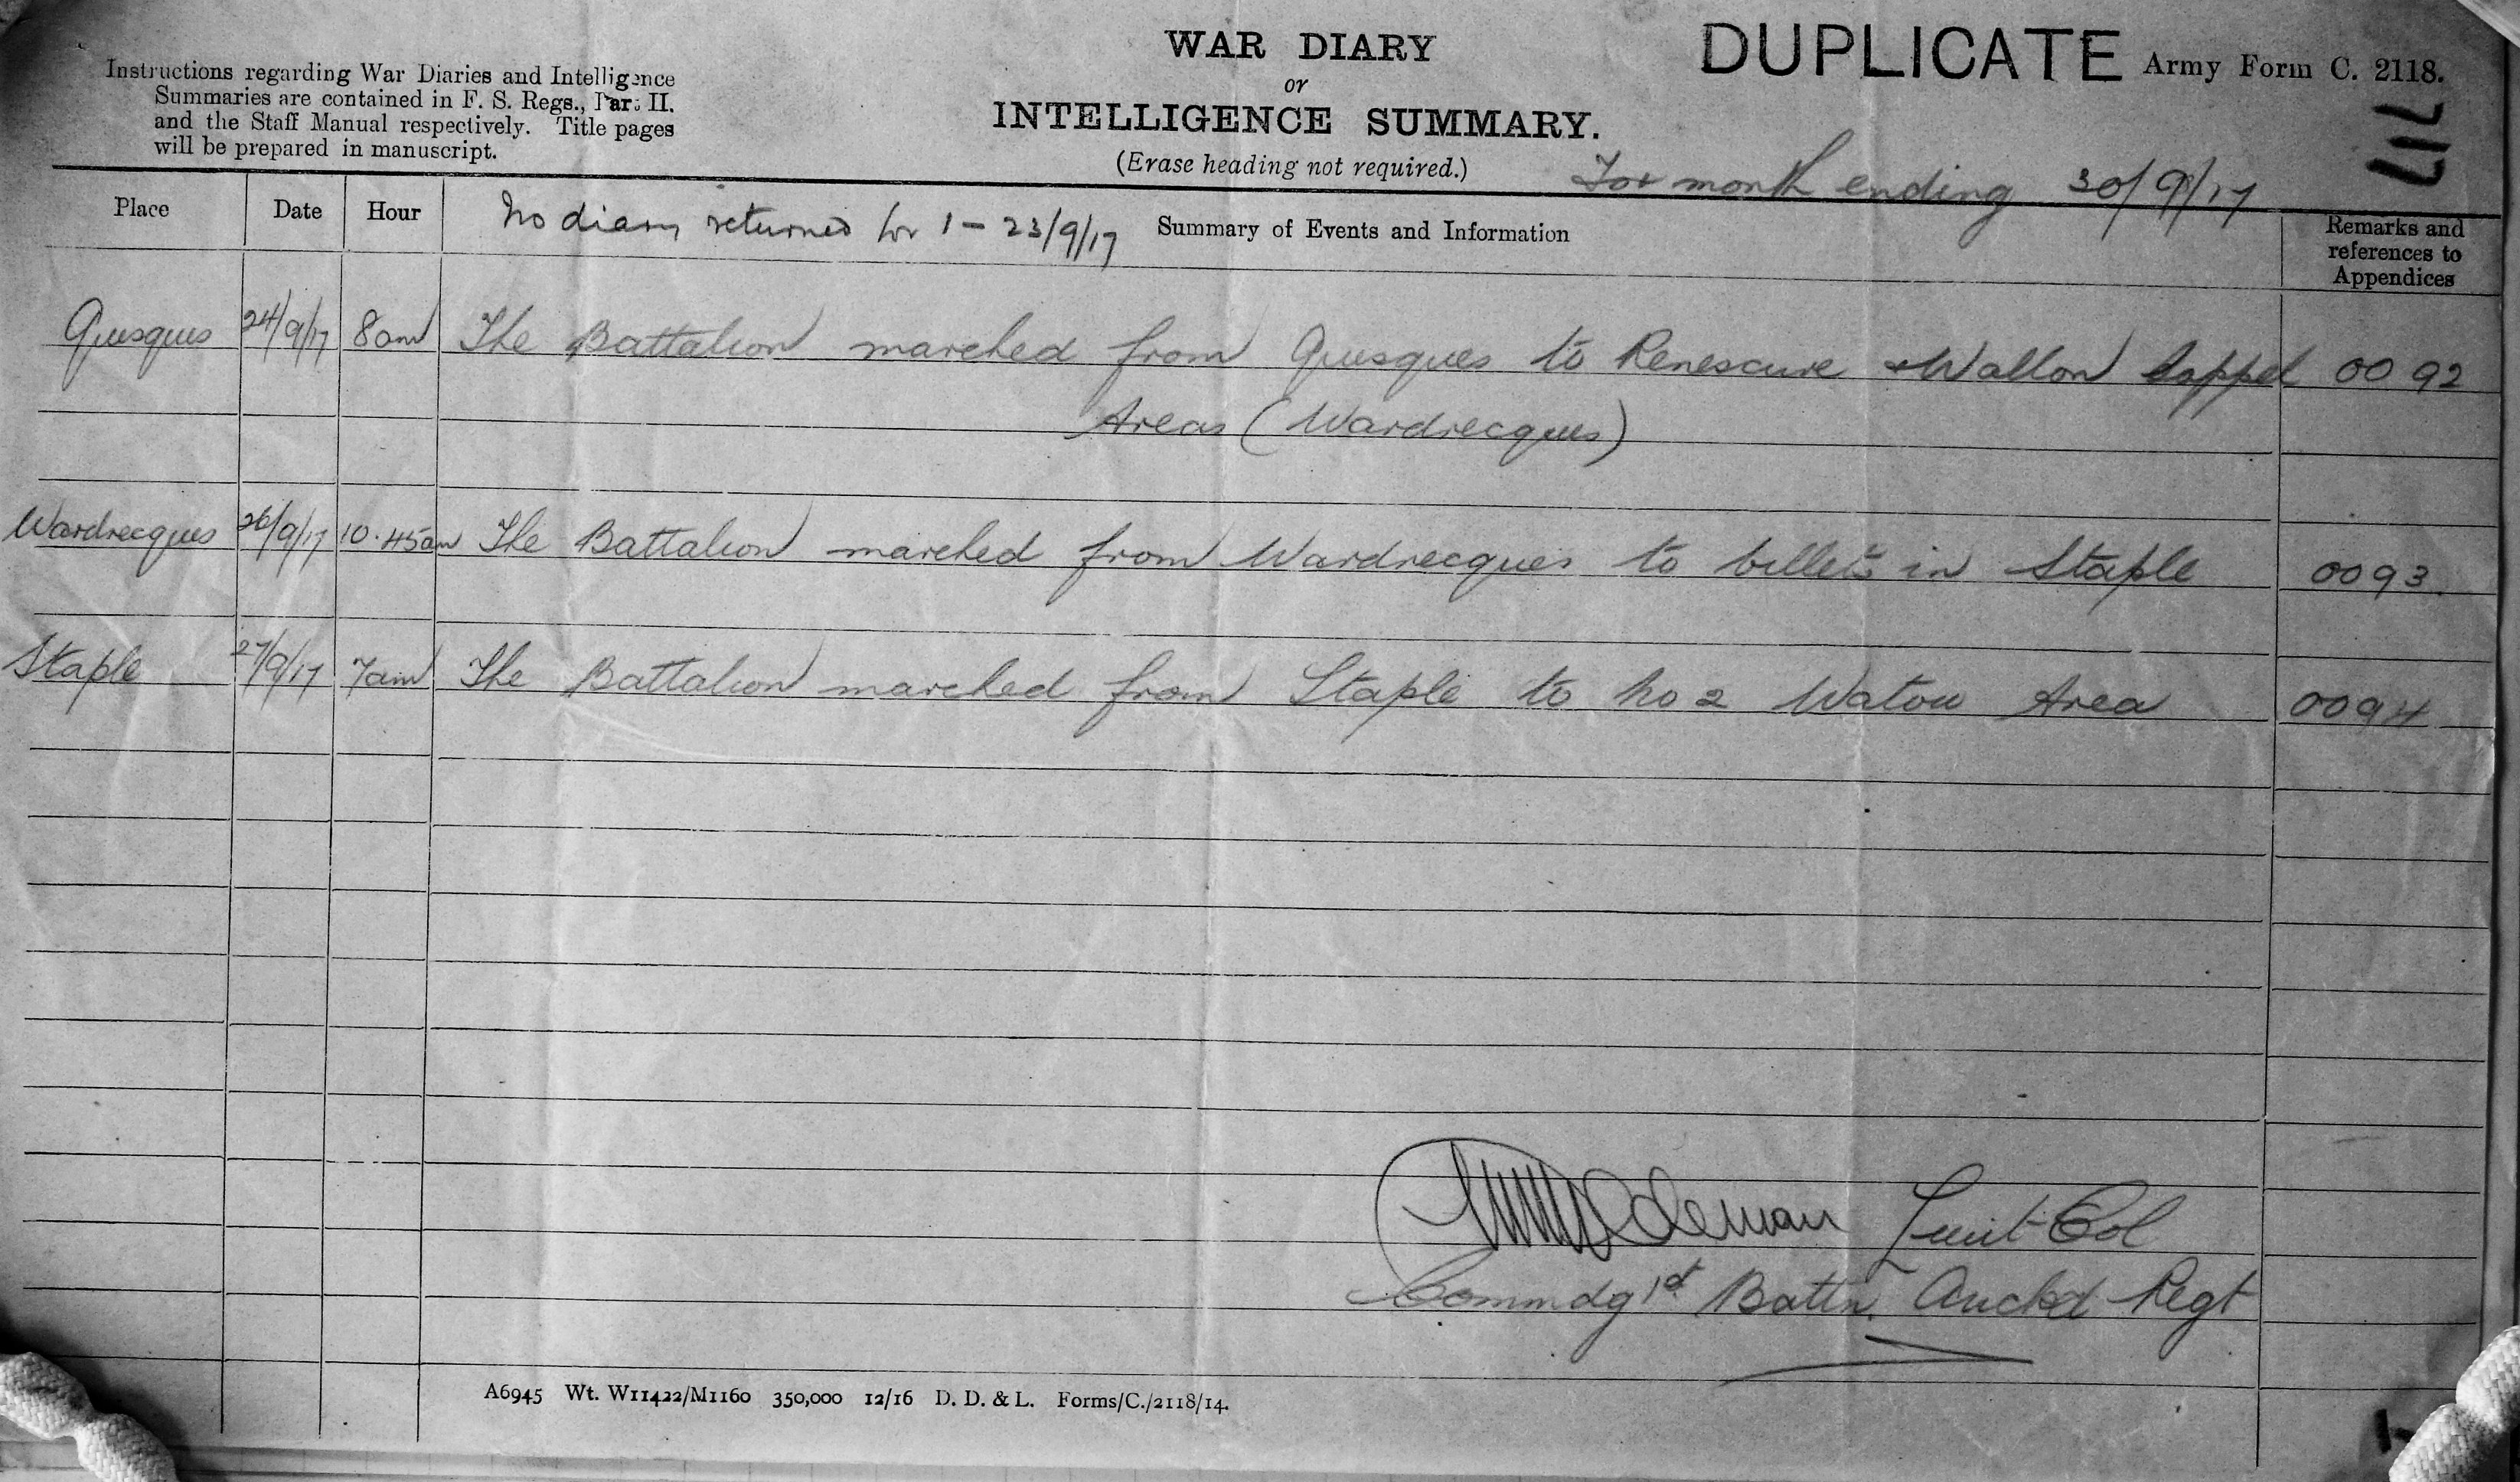 DUPLICATE Army Form C. 2118.
WAR DIARY
or
INTELLIGENCE SUMMARY.
(Erase heading not required.)
Instructions regarding War Diaries and Intelligence
Summaries are contained in F. S. Regs., Part II.
and the Staff Manual respectively. Title pages
will be prepared in manuscript.
For month ending 30/9/17
Place Date Hour No diary returned for 1 - 23/9/17 Summary of Events and Information Remarks and
references to
Appendices
Quesques 24/9/17 8am The Battalion marched from Quesques to Renescure & Wallon Cappel 00 92
Areas (Wardrecques)
Wardrecques 26/9/17 10.45am The Battalion marched from Wardrecques to billets in Staple 0093.
Staple 27/9/17 7am The Battalion marched from Staple to No 2 Watou Area 0094
Lieut-Col
Commdg 1st Battn. Auckd Regt
A6945 Wt. W11422/M1160 350,000 12/16 D. D. & L. Forms/C./2118/14.